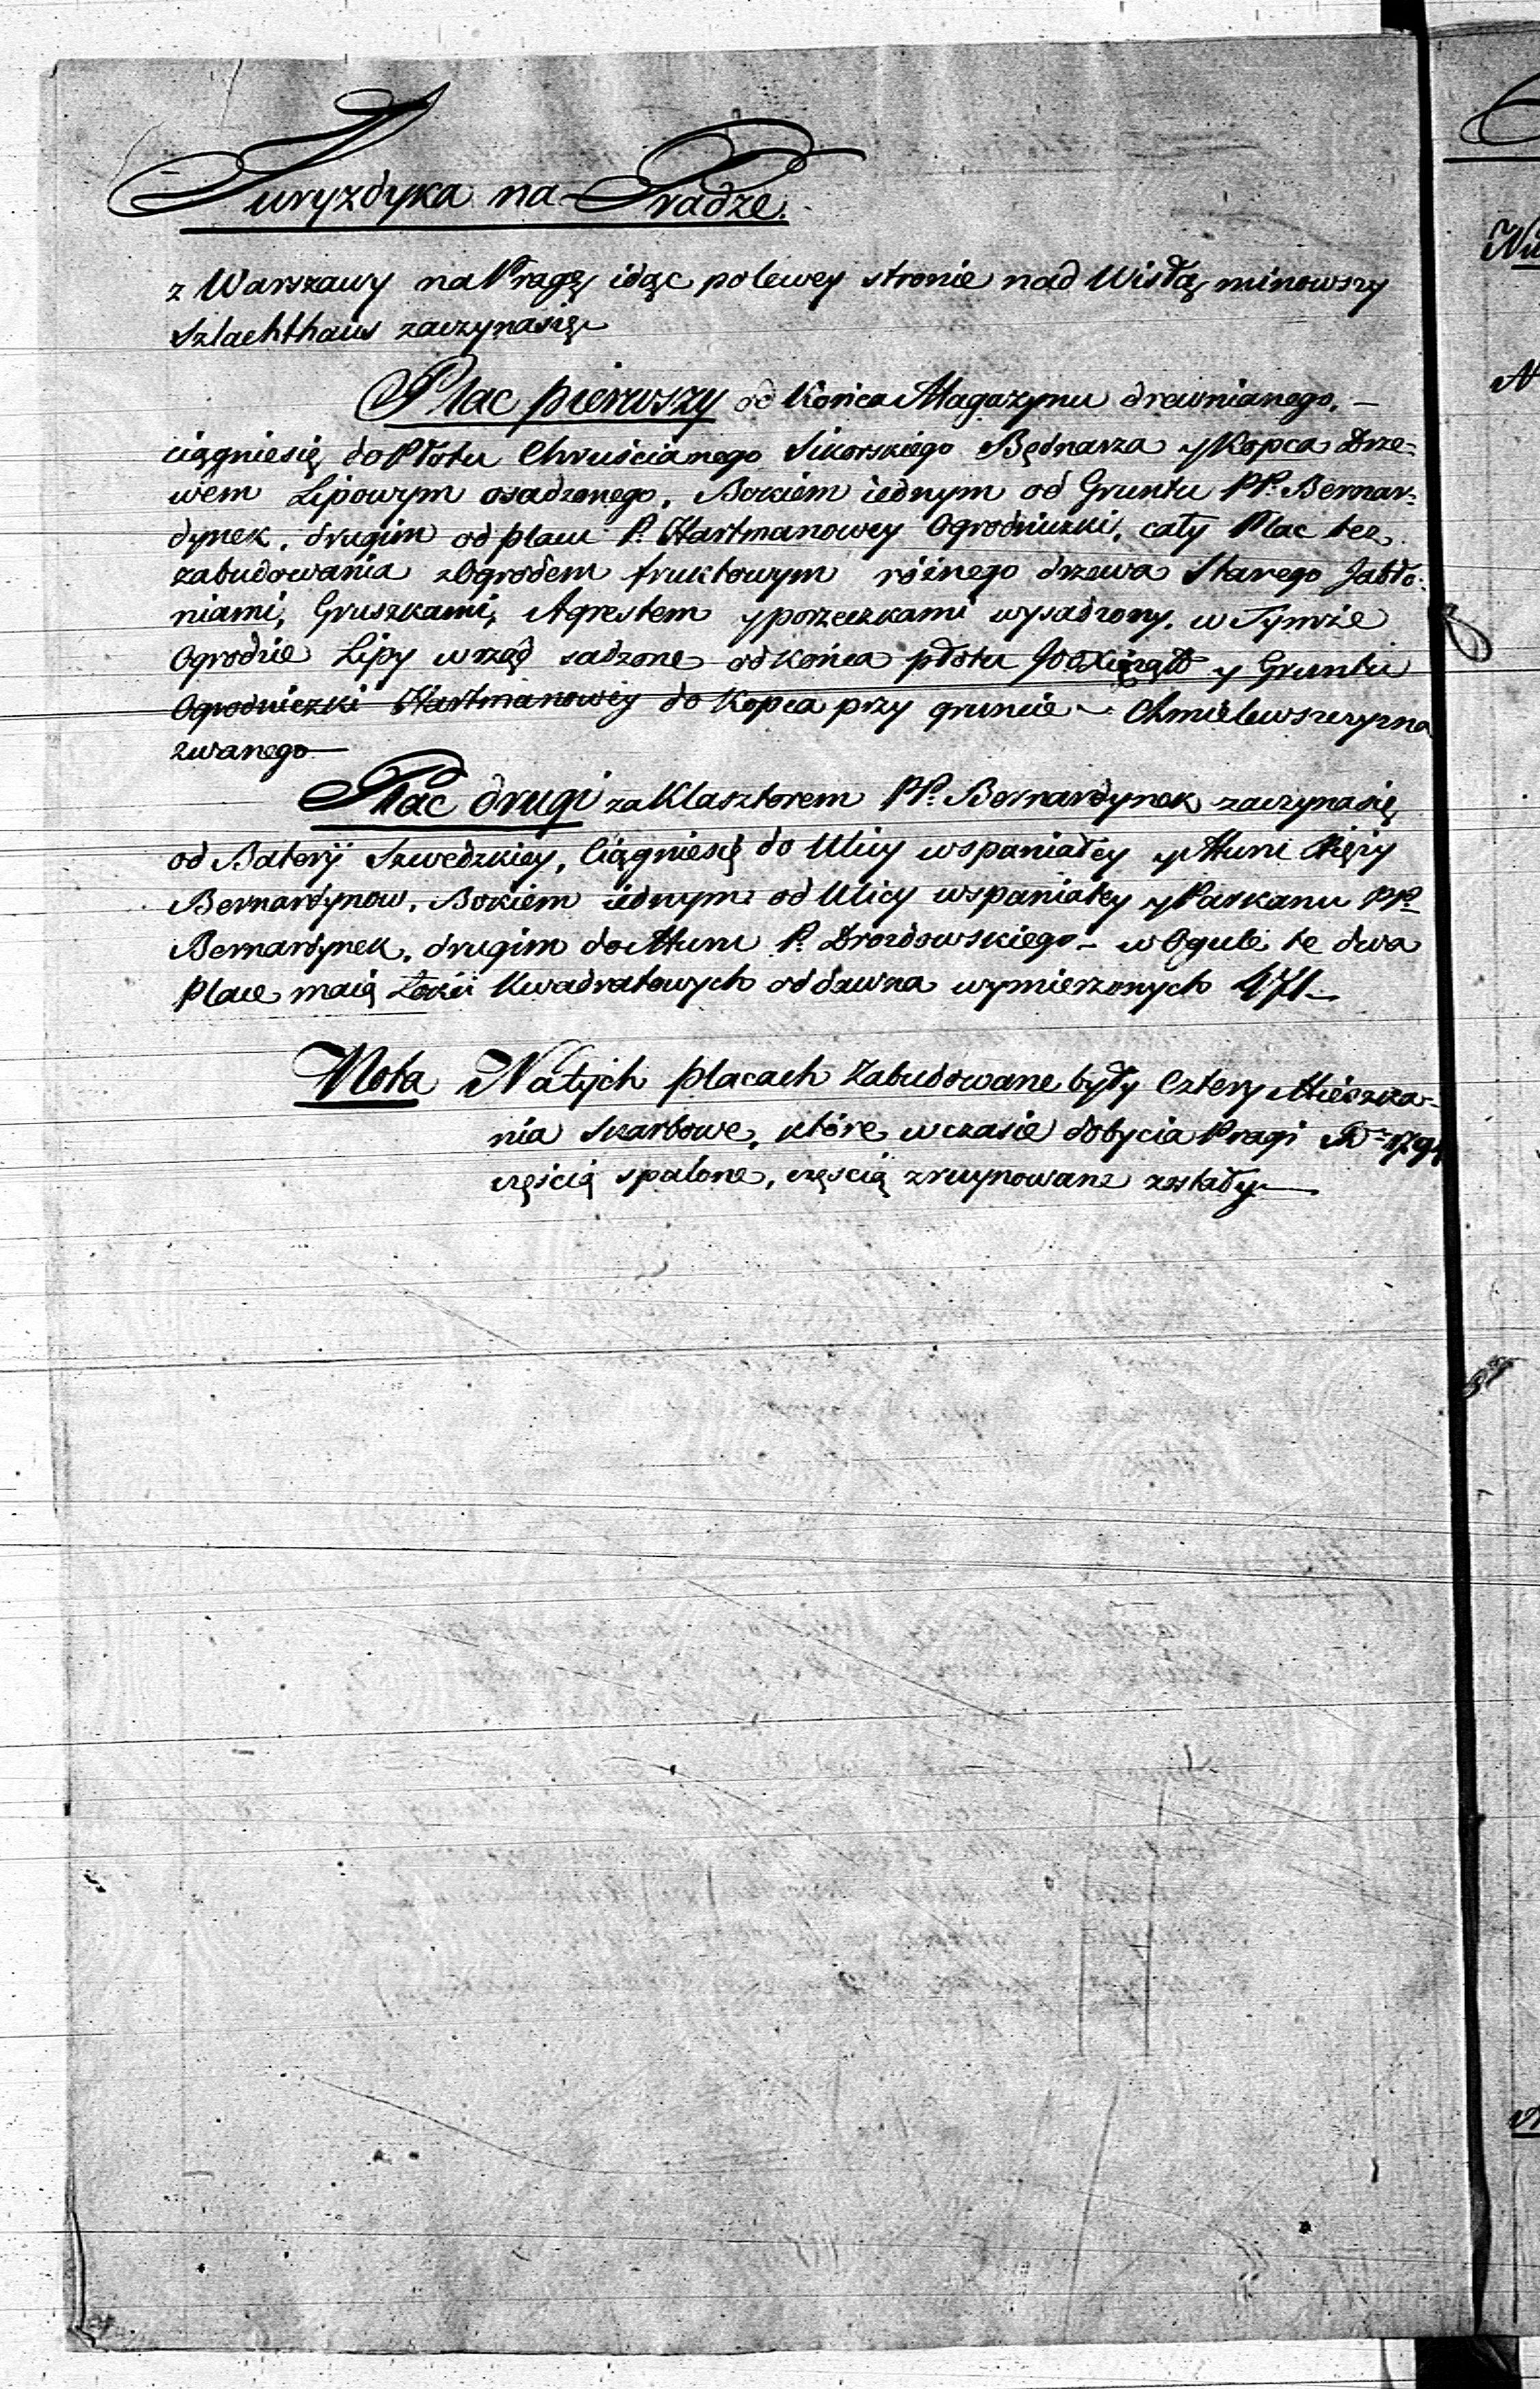 Juryzdyka na Pradze.
z Warszawy na Pragę idąc po lewey stronie nad Wisłą minowszy
Szlachthaus zaczyna się
Plac pierwszy od Końca Magazynu drewnianego. —
ciągnie się do Płotu Chruścianego Sikorskiego Bednarza y Kopca Drze=
wem Lipowym osadzonego, Bokiem iednym od Gruntu PP. Bernar=
dynek, drugim od placu P. Hartmanowey Ogrodniczki, cały Plac bez
zabudowania z Ogrodem fruktowym różnego drzewa Starego Jabło=
niami, Gruszkami, Agrestem y porzeczkami wysadzony, w Tymże
Ogrodzie Lipy w rząd sadzone od Końca płotu y Gruntu
Ogrodniczki Hartmanowey do Kopca przy gruncie — Chmielewszczyzna
zwanego —
Plac drugi za Klasztorem PP. Bernardynek zaczyna się
od Bateryi Szwedzkiey, Ciągnie się do Ulicy wspaniałey y Muru Xięży
Bernardynow, Bokiem iednym od Ulicy wspaniałey y Parkanu PP.
Bernardynek, drugim do Muru P. Drozdowskiego — w Ogule te dwa
Place maią Łokci Kwadratowych od dawna wymierzonych 471 —
Nota Na tych placach Zabudowane były Cztery Mieszka=
nia Skarbowe, które w czasie dobycia Pragi Rº 1794
częścią spalone, częścią zruynowane zostały —